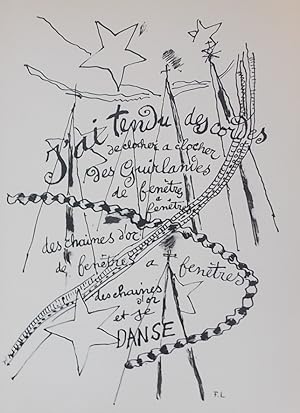 J'ai tendu des cordes
de clocher a clocher
des Guirlandes
de fenêtre
a
fenêtre
des chaines d'or
de fenêtre a fenêtres
des chaines
d'or
et je
DANSE
F.L